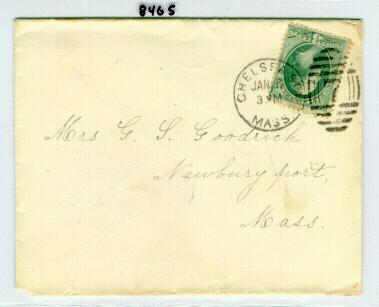 8465
CHELSEA
JAN 12
3 PM
MASS.
Mrs G. S. Goodrich
Newburyport,
Mass.